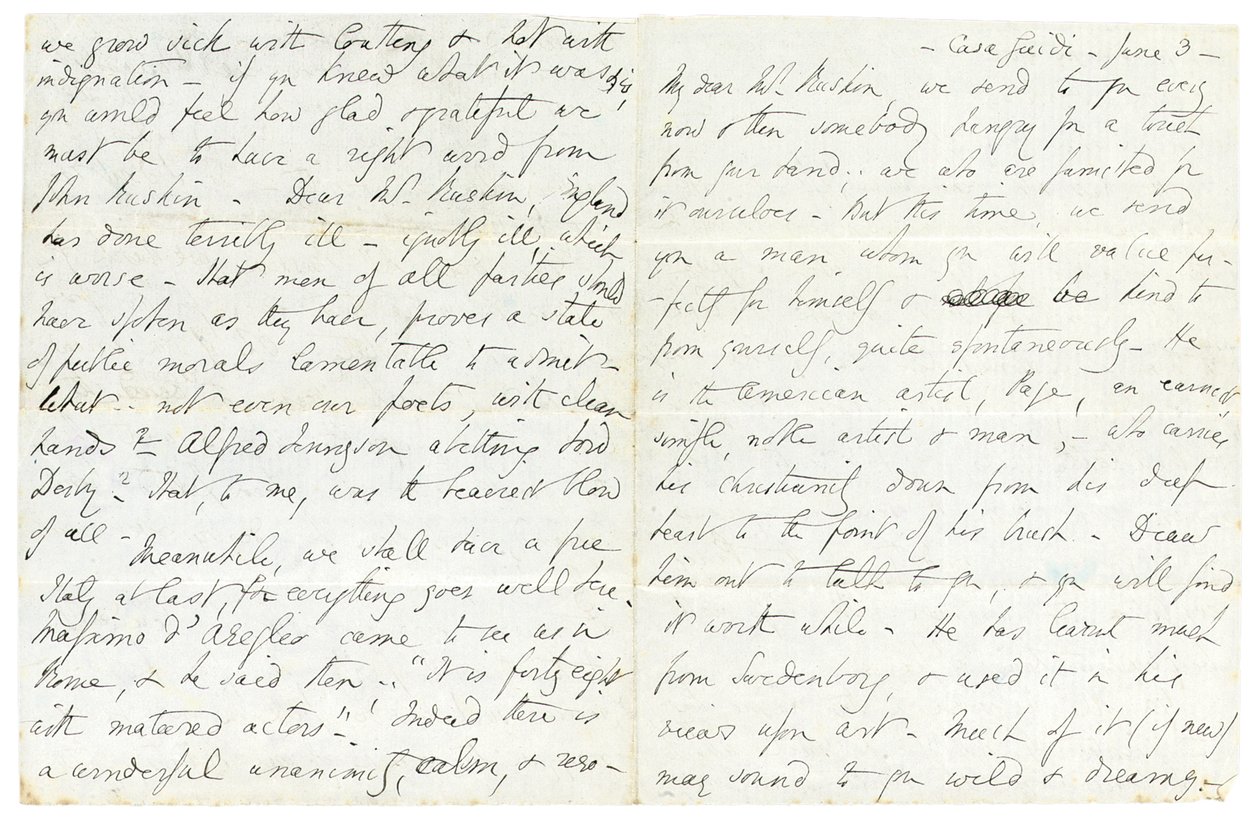 we grow sick with loathing & hot with
indignation – if you knew what it was & is,
you would feel how glad & grateful we
must be to have a right word from
John Ruskin – Dear Mr. Ruskin, England
has done terribly ill – ignobly ill, which
is worse – That men of all parties should
have spoken as they have, proves a state
of public morals lamentable to admit –
What.. not even our poets, with clean
hands? – Alfred Tennyson abetting Lord
Derby? That, to me, was the heaviest blow
of all –
Meanwhile, we shall have a free
Italy at least, for everything goes well here.
Massimo d'Azeglio came to see us in
Rome, & he said then .. "It is forty eight
with matured actors"! Indeed there is
a wonderful unanimity, calm, & reso–
– Casa Guidi – June 3 –
My dear Mr. Ruskin, we send to you every
now & then somebody hungry for a touch
from your hand; we who are famished for
it ourselves – But this time, we send
you a man whom you will value per–
–fectly for himself & be kind to
from yourself, quite spontaneously – He
is the American artist, Page, an earnest
simple, noble artist & man, – who carries
his christianity down from his deep
heart to the point of his brush – Draw
him out to talk to you, & you will find
it worth while – He has learnt much
from Swedenborg & used it in his
views upon art – Much of it (if new)
may sound to you wild & dreamy –